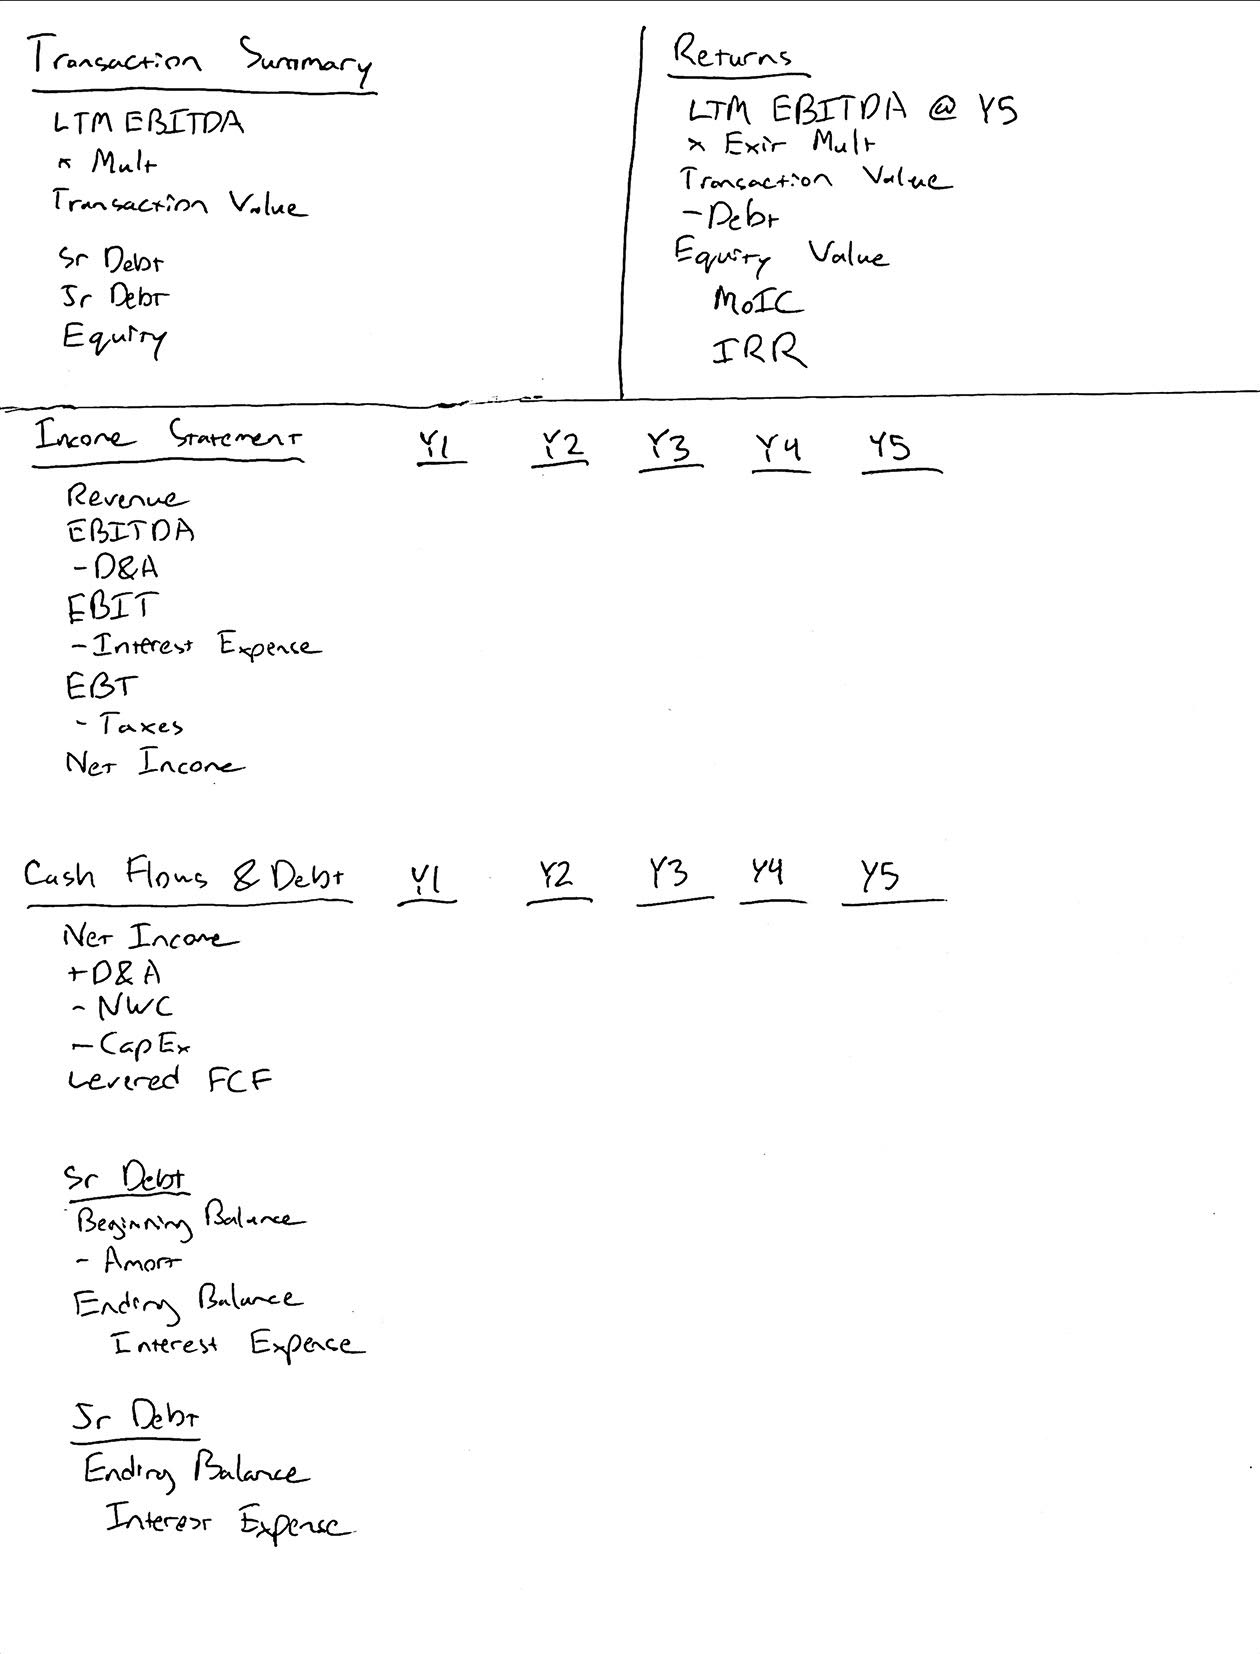 Transaction Summary
LTM EBITDA
x Mult
Transaction Value
Sr Debt
Jr Debt
Equity
Returns
LTM EBITDA @ Y5
x Exit Mult
Transaction Value
- Debt
Equity Value
MoIC
IRR
Income Statement Y1 Y2 Y3 Y4 Y5
Revenue
EBITDA
- D&A
EBIT
- Interest Expense
EBT
- Taxes
Net Income
Cash Flows & Debt Y1 Y2 Y3 Y4 Y5
Net Income
+ D&A
- NWC
- CapEx
Levered FCF
Sr Debt
Beginning Balance
- Amort
Ending Balance
Interest Expense
Jr Debt
Ending Balance
Interest Expense